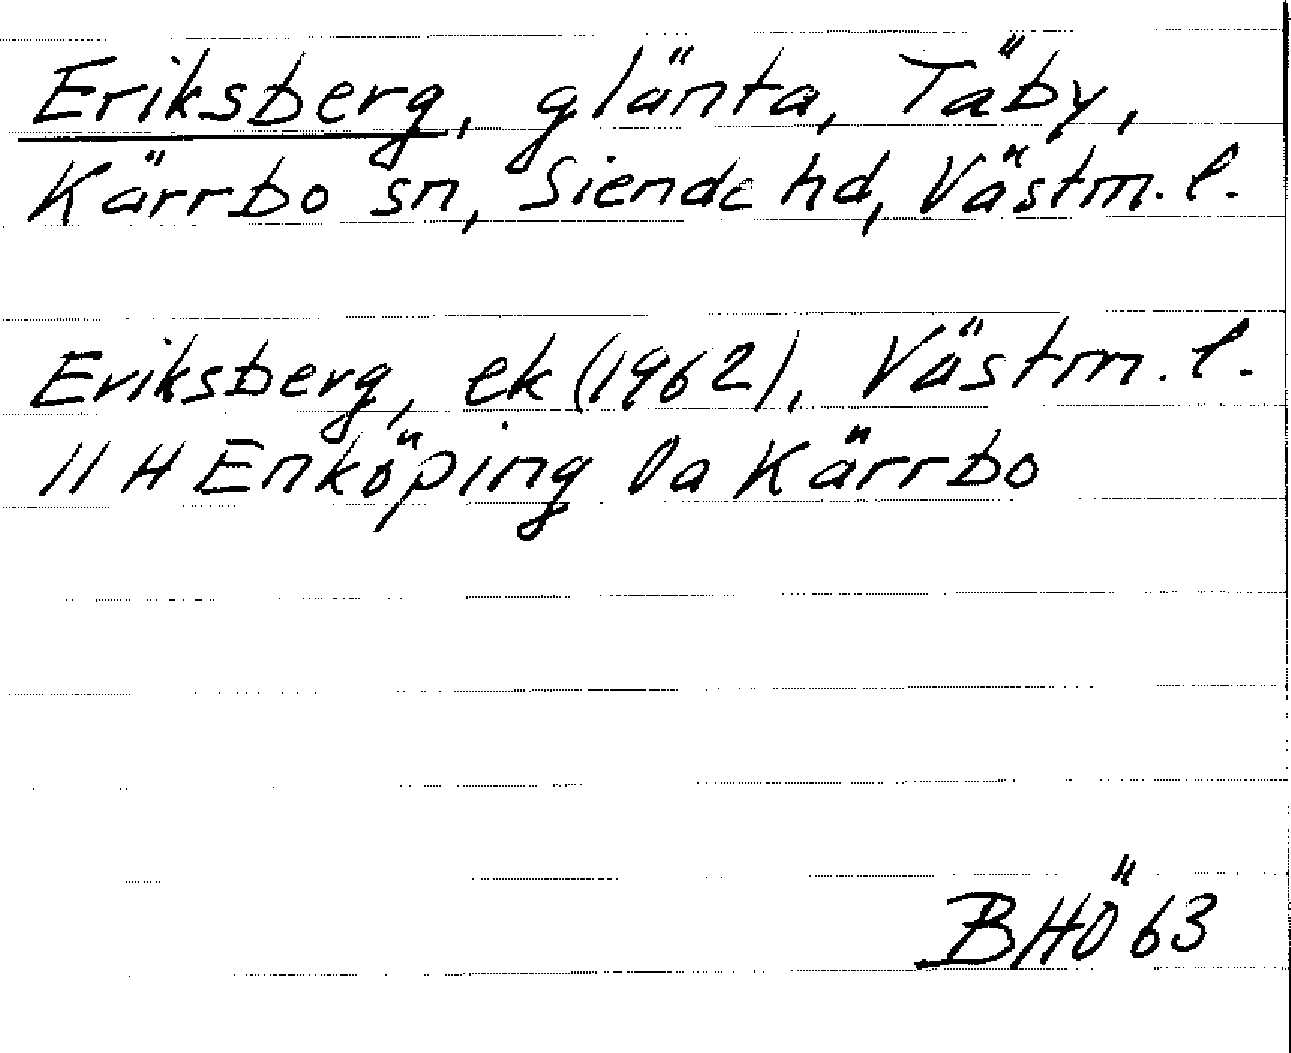 Eriksberg, glänta, Täby,
Kärrbo sn, Siende hd, Västm. l.
Eriksberg, ek (1962), Västm. l.
11 H Enköping 0a Kärrbo
BHÖ 63